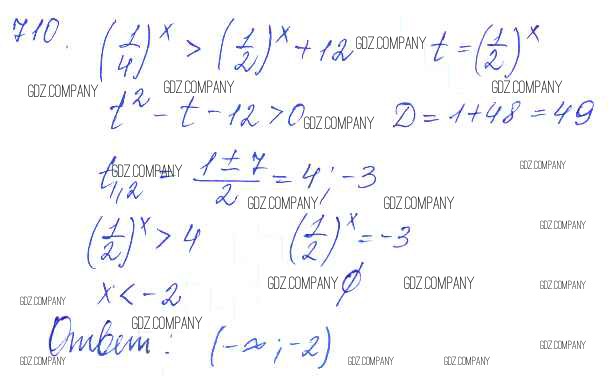 710. (1/4)^x > (1/2)^x + 12 GDZ.COMPANY t = (1/2)^x
GDZ.COMPANY GDZ.COMPANY GDZ.COMPANY
t² - t - 12 > 0 GDZ.COMPANY D = 1 + 48 = 49
t₁,₂ = (1 ± 7)/2 = 4; -3 GDZ.COMPANY GDZ.COMPANY
GDZ.COMPANY GDZ.COMPANY
(1/2)^x > 4 (1/2)^x = -3 GDZ.COMPANY
GDZ.COMPANY ∅ GDZ.COMPANY GDZ.COMPANY
x < -2 GDZ.COMPANY
GDZ.COMPANY
Ответ: (-∞; -2) GDZ.COMPANY
GDZ.COMPANY GDZ.COMPANY GDZ.COMPANY